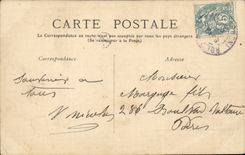 CARTE POSTALE
La Correspondance au recto n'est pas acceptée par tous les pays étrangers
(Se renseigner à la Poste)
Correspondance
Adresse
Souvenir a
tous
Monsieur
fils
286 Boulevard Voltaire
Paris